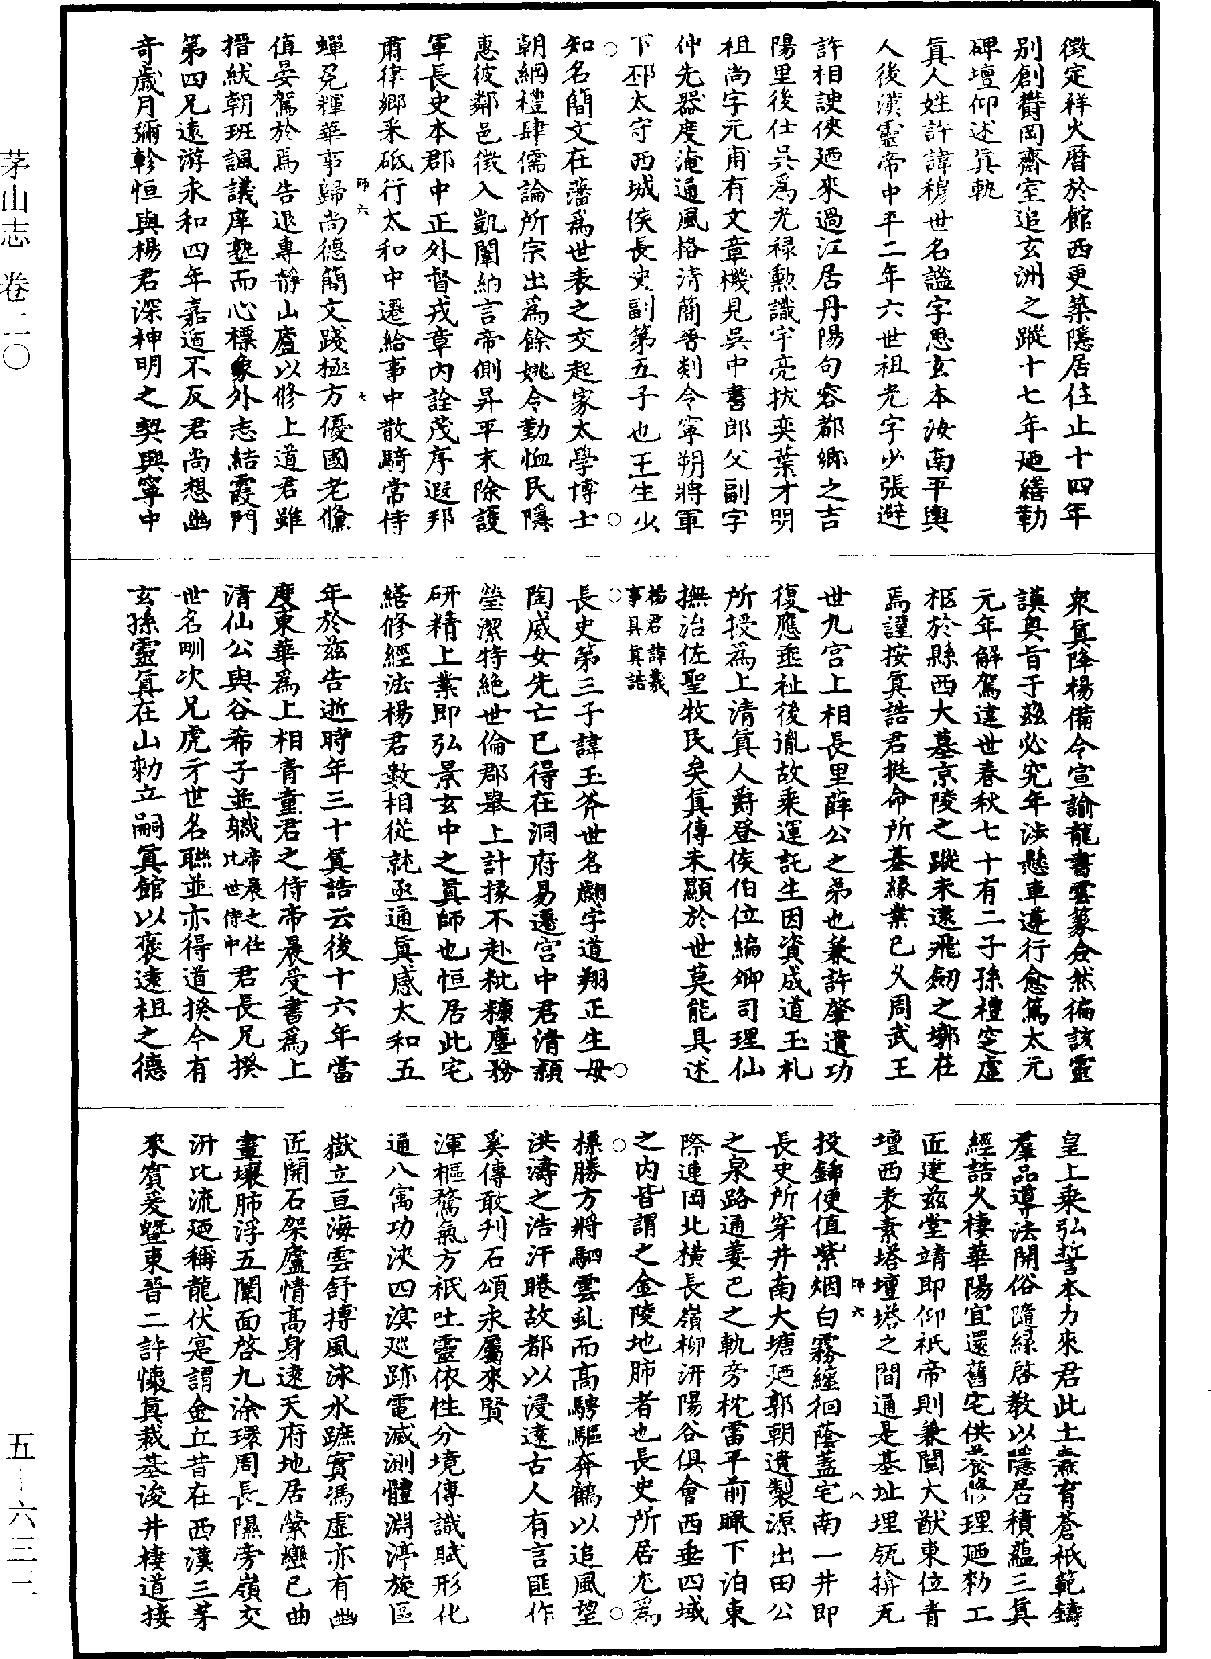 茅山志 卷二〇
五—六三一
徵定祥火曆於館西更築隱居住止十四年
別創欝岡齋室追玄洲之蹤十七年廼繕勒
碑壇仰述眞軌
眞人姓許諱穆世名謐字思玄本汝南平輿
人後漢靈帝中平二年六世祖光字少張避
許相諛俠廼來過江居丹陽句容都鄉之吉
陽里後仕吳爲光祿勲識宇亮拔奕葉才明
祖尚字元甫有文章機見吳中書郎父副字
仲先器度淹通風格清簡晉剡令寧朔將軍
下邳太守西城侯長史副第五子也王生少
知名簡文在藩爲世表之交起家太學博士
朝綱禮肆儒論所宗出爲餘姚令勤恤民隱
惠彼鄰邑徵入凱闈納言帝側昇平末除護
軍長史本郡中正外督戎章內詮茂序遐邦
肅律鄉釆砥行太和中遷給事中散騎常侍
師六 七
蟬冕輝華事歸尚德簡文踐極方優國老儻
值晏駕於焉告退專靜山廬以修上道君雖
搢紱朝班諷議庠塾而心標象外志結霞門
第四兄遠游永和四年嘉遁不反君尚想幽
奇歲月彌軫恒與楊君深神明之契興寧中
衆眞降楊備令宣諭龍書雲篆僉然徧該靈
謨奥旨于茲必究年涉懸車遵行愈篤太元
元年解駕違世春秋七十有二子孫禮窆虛
柩於縣西大墓京陵之蹤未遠飛劒之墎在
焉謹按眞誥君挺命所基緣業已久周武王
世九宮上相長里薛公之弟也兼許肇遺功
復應垂祉後胤故乘運託生因資成道玉札
所授爲上清眞人爵登侯伯位編卿司理仙
撫治佐聖牧民矣眞傳未顯於世莫能具述
楊君諱羲
事具眞誥
長史第三子諱玉斧世名翽字道翔正生母
陶威女先亡已得在洞府易遷宮中君清穎
瑩潔特絕世倫郡舉上計掾不赴粃糠塵務
研精上業即弘景玄中之眞師也恒居此宅
繕修經法楊君數相從就亟通眞感太和五
年於茲告逝時年三十眞誥云後十六年當
度東華爲上相青童君之侍帝晨受書爲上
清仙公與谷希子並職帝晨之仕比世侍中君長兄揆
世名甽次兄虎牙世名聮並亦得道揆今有
玄孫靈眞在山勑立嗣眞館以褒遠祖之德
皇上乘弘誓本力來君此土燾育蒼祇範鑄
羣品導法開俗隨緣啓教以隱居積蘊三眞
經誥久棲華陽宜還舊宅供養修理廼勑工
匠建茲堂靖即仰祇帝則兼闡大猷東位青
壇西表素塔壇塔之間通是基址埋瓴揜瓦
師六 八
投鍤便值紫烟白霧纏徊蔭蓋宅南一井即
長史所穿井南大塘廼郭朝遺製源出田公
之泉路通姜巴之軌旁枕雷平前瞰下泊東
際連岡北橫長嶺柳汧陽谷俱會西垂四域
之內皆謂之金陵地肺者也長史所居尤爲
標勝方將駟雲虬而高騁驅奔鶴以追風望
洪濤之浩汗睠故都以浸遠古人有言匪作
奚傳敢刋石頌永屬來賢
渾樞騖氣方祇吐靈依性分境傳識賦形化
通八寓功浹四溟廵跡電滅測體淵渟旋區
嶽立亘海雲舒摶風泳水蹠實馮虛亦有幽
匠開石架廬情高身遠天府地居縈巒已曲
畫壤肺浮五闉面啓九涂環周長隰旁嶺交
汧比流廼稱龍伏寔謂金丘昔在西漢三茅
來賓爰曁東晉二許懷眞栽基浚井棲道接